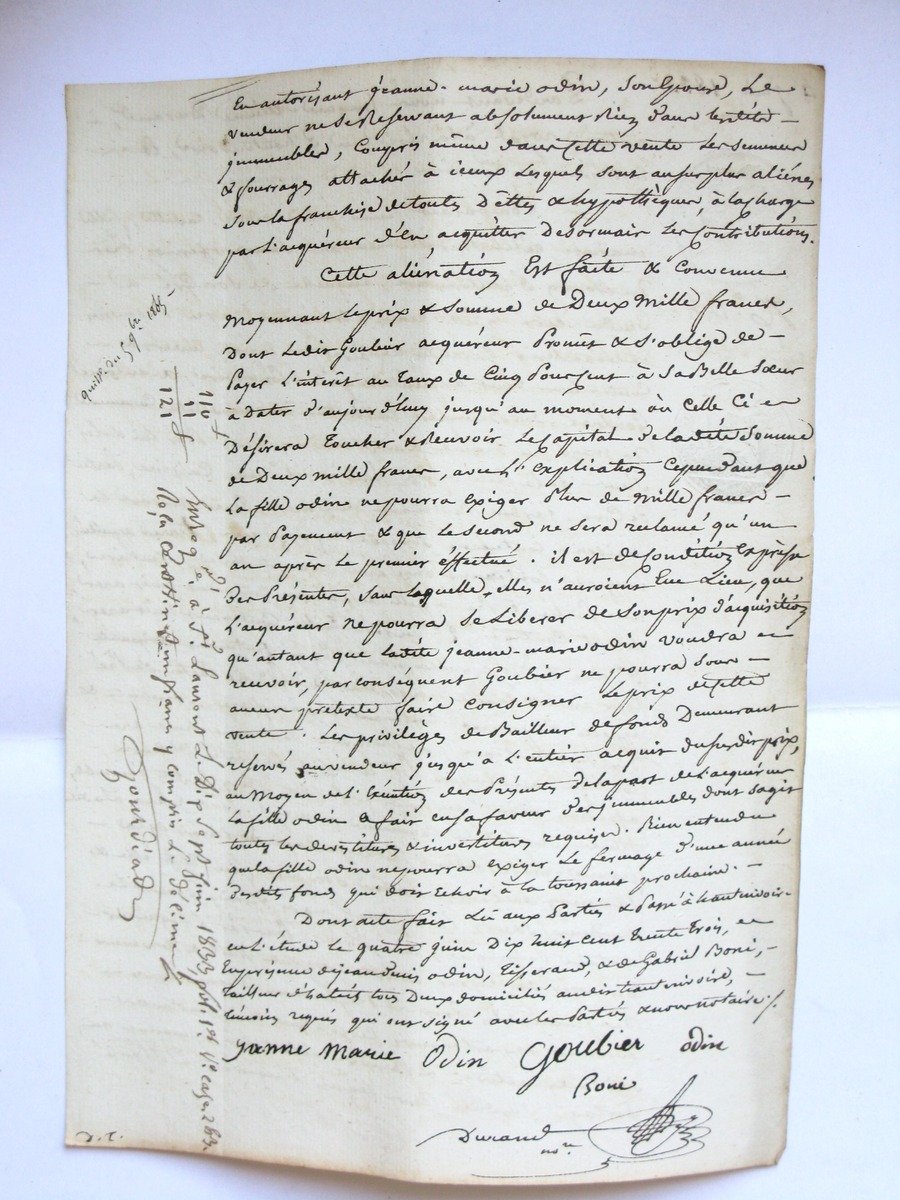 En autorisant jeanne-marie odin, Son Epouse, Le
vendeur ne Se Reservant absolument Riez dans lesdits
jmmeubles, Compris même dans Cette vente Les Semences
& fourrages attachés à iceux Lesquels sont au surplus aliénés
Sous la franchise de toutes Dêttes & hypothèques, à la charge
par L'acquéreur d'en acquitter Desormais Les Contributions.
Cette aliénatioz Est faite & Convenue
Moyennant Le prix & Somme de Deux Mille francs,
Dont Ledit Goubier acquéreur Promet & S'oblige de
Payer L'intérêt au Taux de Cinq Pour Cent à Sa Belle Sœur
à Dater d'aujourd'huy jusqu'au moment où Celle Ci en
Désirera Toucher & Recevoir Le Capital de ladite Somme
de Deux mille francs, avec L'explicatioz Cependant que
La fille odin ne pourra exiger Plus de Mille francs
par Payement & que Le Second ne Sera reclamé qu'un
an après Le premier éffectué. il est de Conditioz Expresse
Des Présentes, Sans Laquelle, elles n'auroient Eue Lieu, que
L'acquéreur ne pourra se Liberer de Son prix d'acquisitioz
qu'autant que ladite jeanne-marie odin voudra en
recevoir, par conséquent Goubier ne pourra Sous
aucun pretexte faire Consigner Le prix de Cette
vente. Les privilèges de Bailleur de fonds Demeurant
reservés au vendeur jusqu'à L'entier acquit du Susdit prix,
au Moyen de L'Exécutioz des Présentes de la part de L'acquéreur
La fille odin a fait en sa faveur des jmmeubles dont Sagit
toutes les devestitures & investitures requises. Bien entendu
que la fille odin ne pourra exiger Le fermage d'une année
desdits fonds qui doit Echoir à la toussaint prochaine.
Dont acte fait Lû aux Parties & Passé à hautrivoire
en L'étude le quatre juin Dix huit Cent trente Trois, en
En présence de jean odin, Tisserand, & de Gabriel Boni,
tailleur d'habits tous Deux domiciliés audit hautrivoire,
témoins requis qui ont signé avec les Parties & nous notaire ./.
janne marie Odin Goubier odin
Boni
Durand
nore
quitt. du 5 9bre 1865
110
11
121
Enregé à St Laurent Le Dix Sept juin 1833, fol. 1er
Reçu Cent vingt un francs y compris Le décime
D.C.